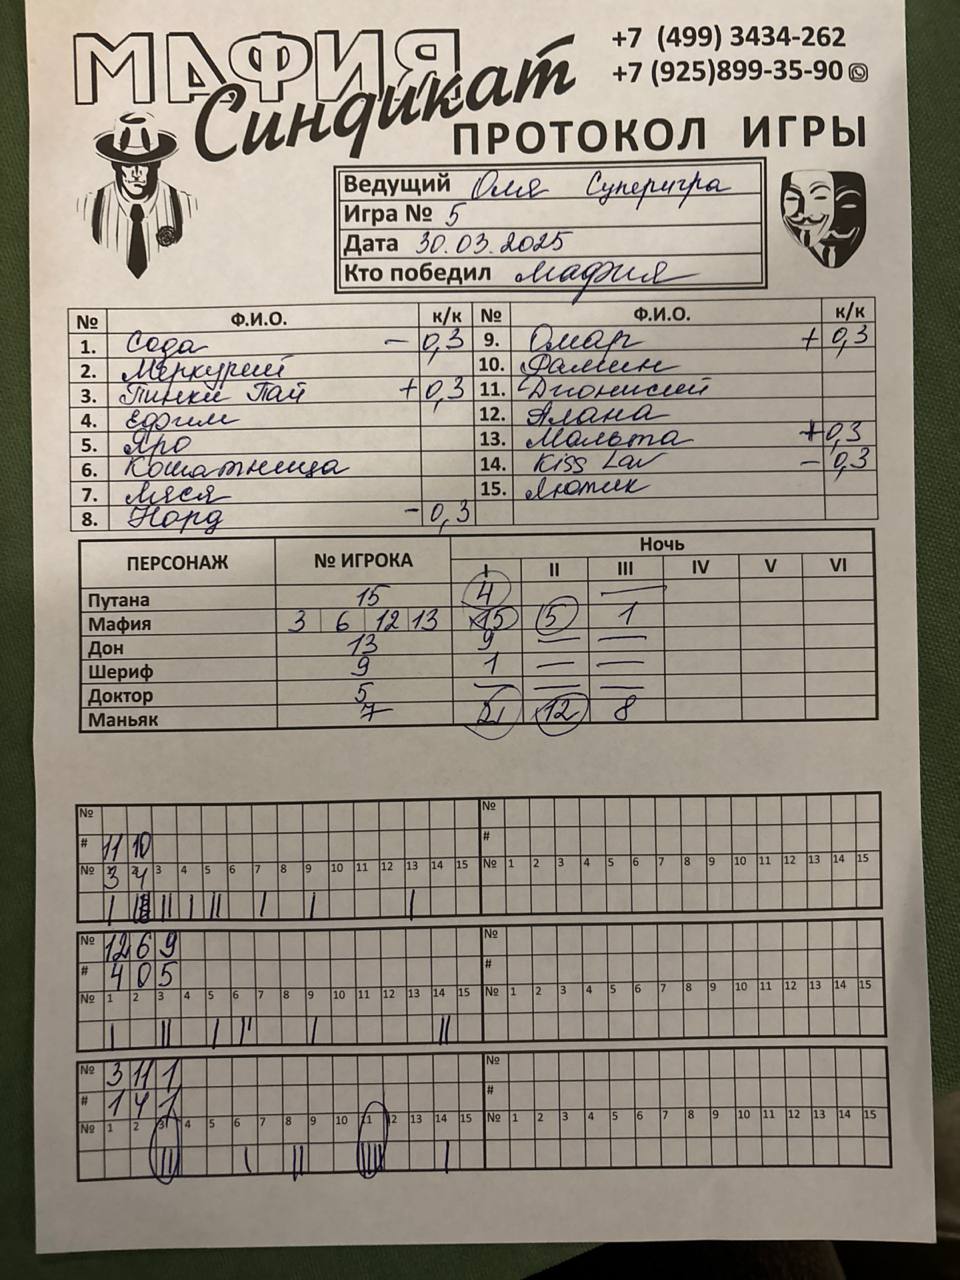 МАФИЯ
Синдикат
+7 (499) 3434-262
+7 (925)899-35-90
ПРОТОКОЛ ИГРЫ
Ведущий Оля Суперигра
Игра № 5
Дата 30.03.2025
Кто победил мафия
№ Ф.И.О. к/к № Ф.И.О. к/к
1. Сода - 0,3 9. Омар + 0,3
2. Меркурий 10. Фамин
3. Пинки Пай + 0,3 11. Дионисий
4. Ефим 12. Алана
5. Яро 13. Мальта + 0,3
6. Кошатница 14. Kiss Lav - 0,3
7. Мяся 15. Лютик
8. Норд - 0,3
ПЕРСОНАЖ № ИГРОКА Ночь
I II III IV V VI
Путана 15 4 —
Мафия 3 6 12 13 15 5 1
Дон 13 9 — —
Шериф 9 1 — —
Доктор 5 — — —
Маньяк 7 12 8
№ №
# 11 10 #
№ 3 4 3 4 5 6 7 8 9 10 11 12 13 14 15 № 1 2 3 4 5 6 7 8 9 10 11 12 13 14 15
№ 12 6 9 №
# 4 0 5 #
№ 1 2 3 4 5 6 7 8 9 10 11 12 13 14 15 № 1 2 3 4 5 6 7 8 9 10 11 12 13 14 15
№ 3 11 1 №
# 1 4 1 #
№ 1 2 3 4 5 6 7 8 9 10 11 12 13 14 15 № 1 2 3 4 5 6 7 8 9 10 11 12 13 14 15